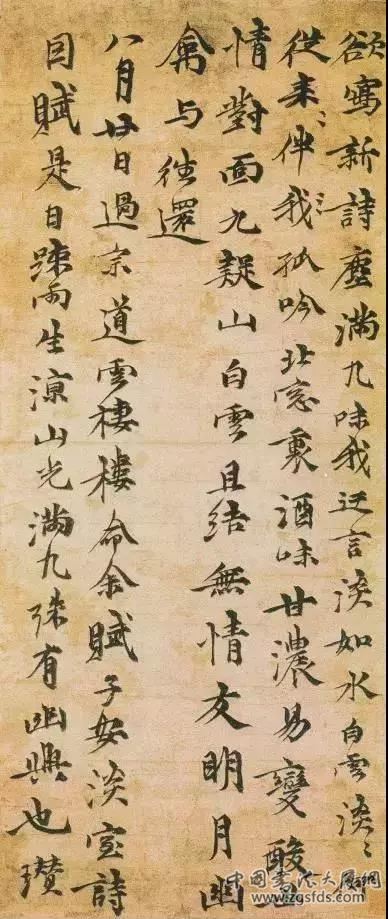 欲寫新詩塵滿几味我迂言淡如水白雲淡〻
從来〻伴我孤吟北窓裏酒味甘濃易變酸世
情對面九疑山白雲且結無情友明月幽
禽与往還
八月廿日過宗道雲棲樓命余賦子安淡室詩
因賦是日疎雨生涼山光滿几殊有幽興也瓚
中国书法大展网
www.zgsfds.com